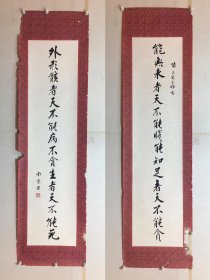 能無求者天不能賤能知足者天不能貧
外形骸者天不能病不貪生者天不能死